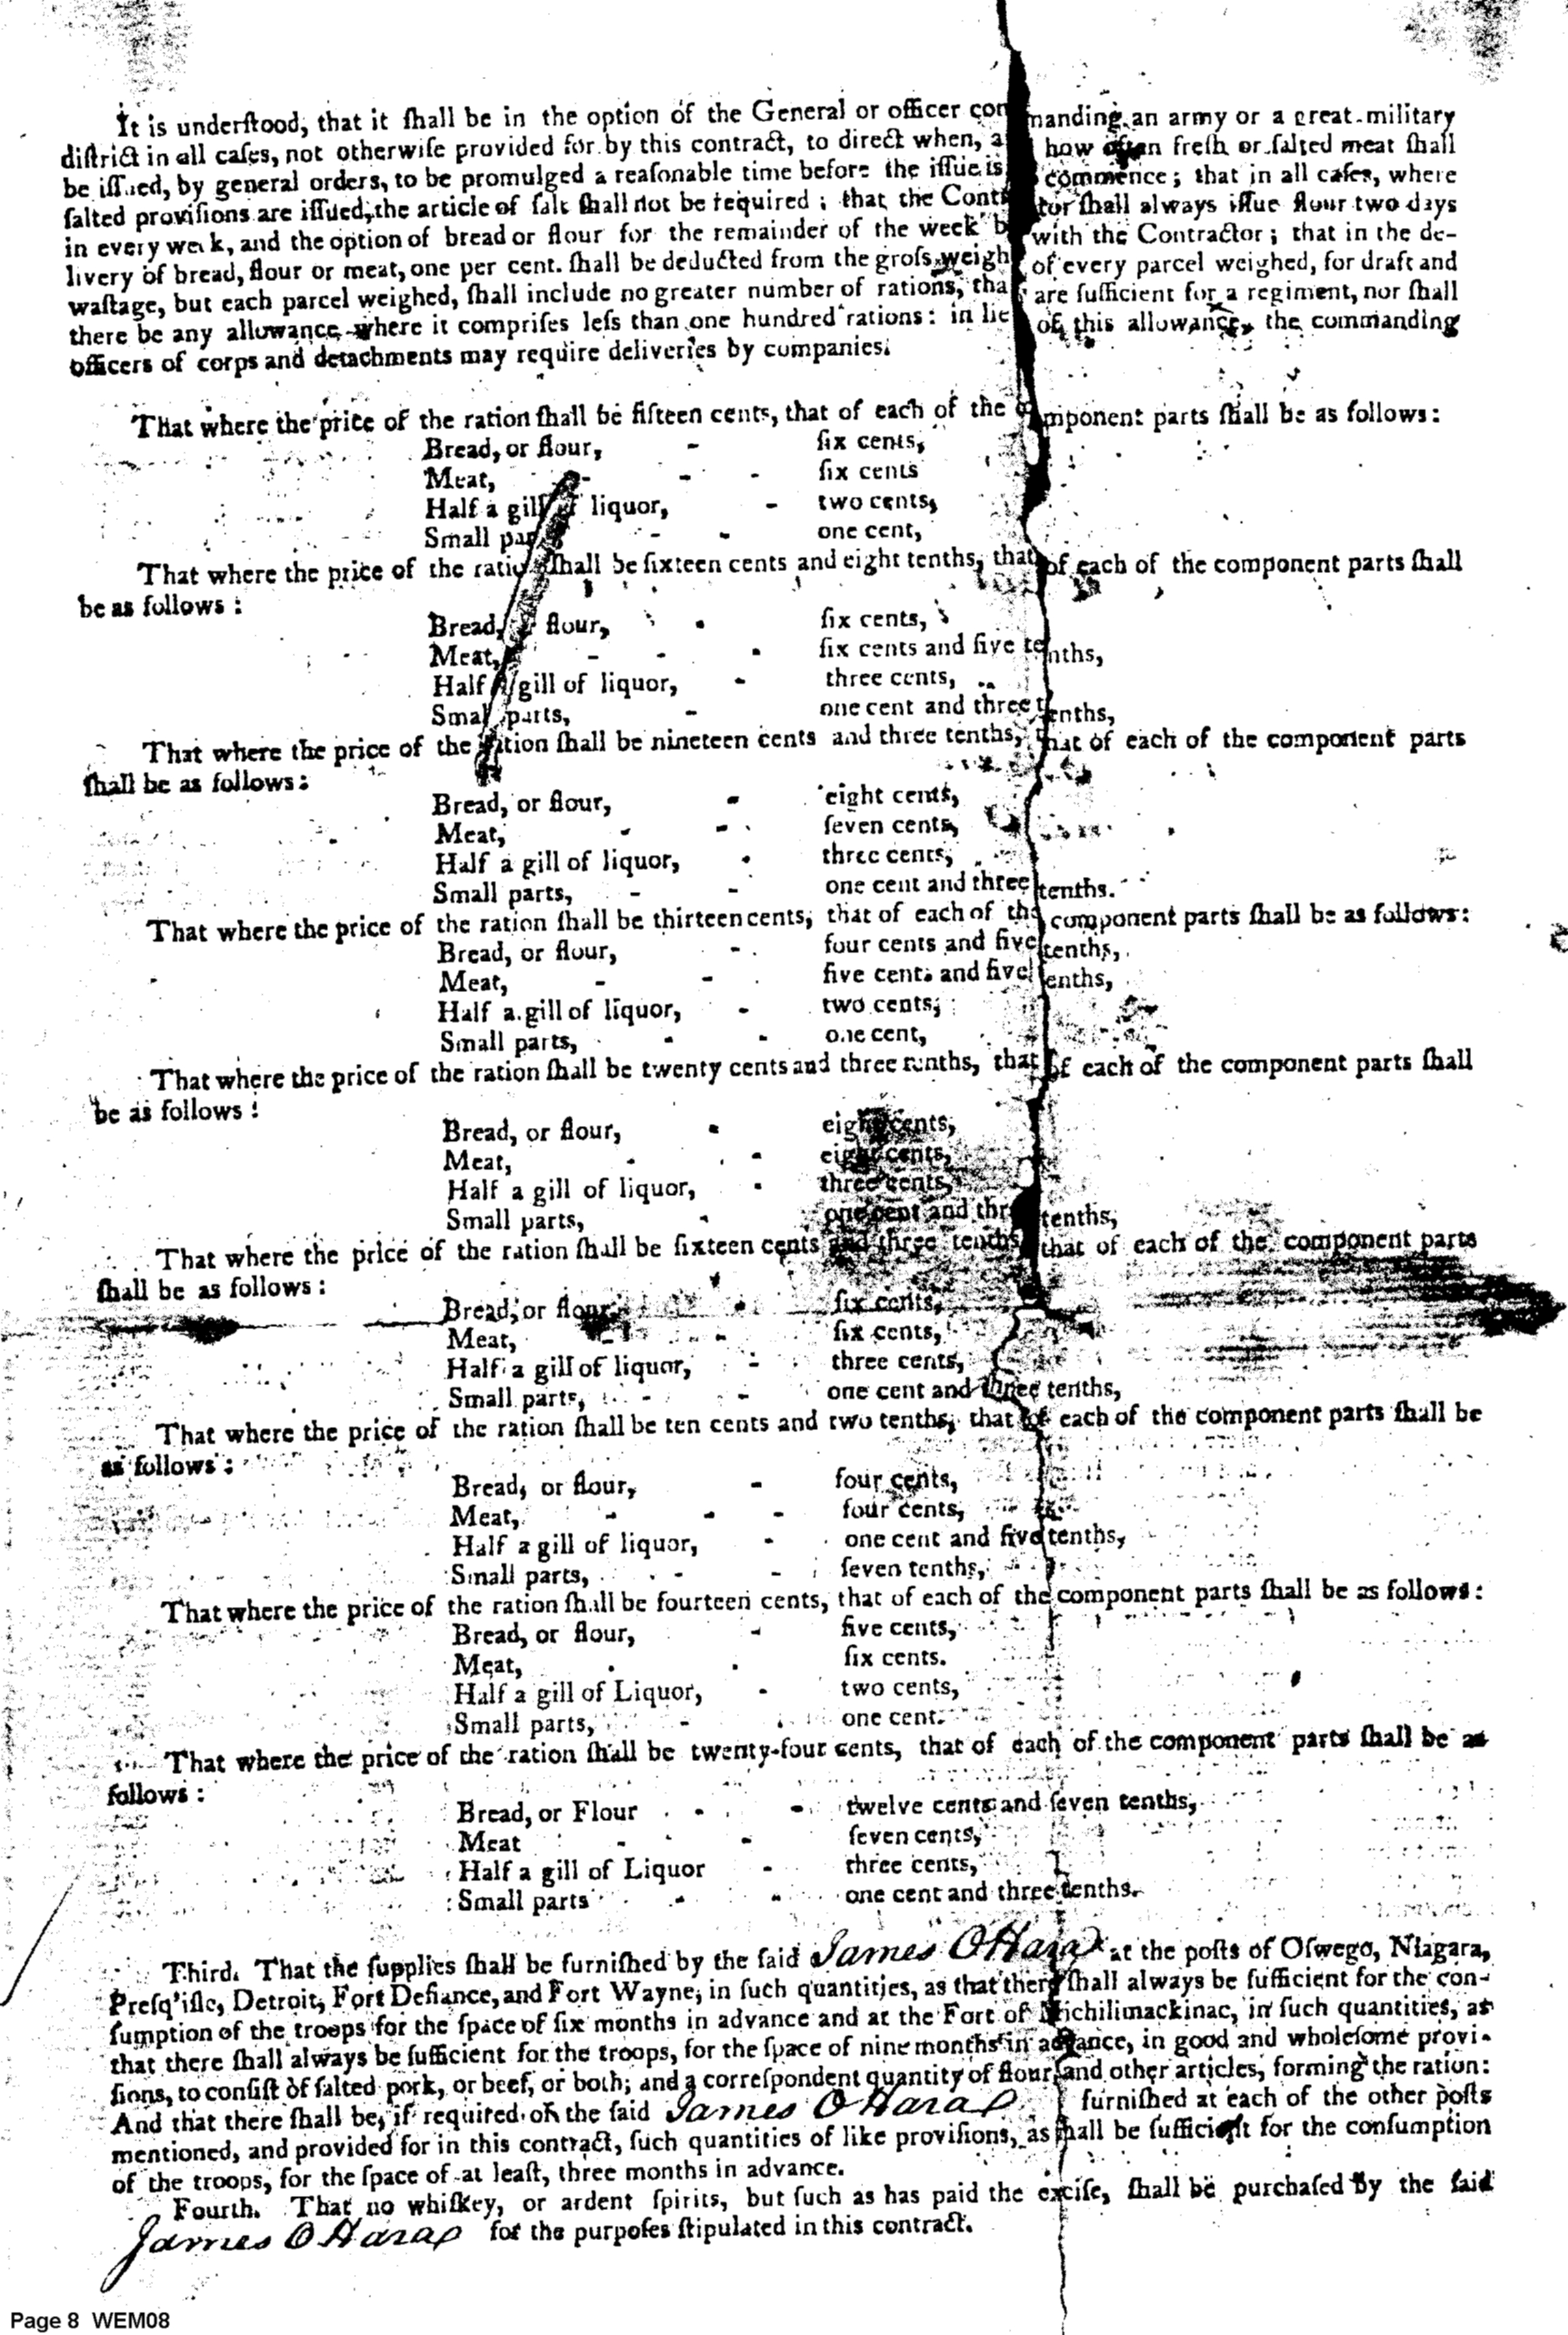 It is understood, that it shall be in the option of the General or officer commanding an army or a great military
district in all cases, not otherwise provided for by this contract, to direct when, a how often fresh or salted meat shall
be issued, by general orders, to be promulged a reasonable time before the issue is commence; that in all cases, where
salted provisions are issued, the article of salt shall not be required; that the Cont tor shall always issue flour two days
in every week, and the option of bread or flour for the remainder of the week b with the Contractor; that in the de-
livery of bread, flour or meat, one per cent. shall be deducted from the gross weigh of every parcel weighed, for draft and
wastage, but each parcel weighed, shall include no greater number of rations, tha are sufficient for a regiment, nor shall
there be any allowance where it comprises less than one hundred rations: in lie of this allowance, the commanding
officers of corps and detachments may require deliveries by companies.
That where the price of the ration shall be fifteen cents, that of each of the component parts shall be as follows:
Bread, or flour, - six cents,
Meat, - - - six cents
Half a gill of liquor, - two cents,
Small parts - - one cent,
That where the price of the ration shall be sixteen cents and eight tenths, that of each of the component parts shall
be as follows:
Bread, or flour, - six cents,
Meat, - - - six cents and five tenths,
Half a gill of liquor, - three cents,
Small parts, - one cent and three tenths,
That where the price of the ration shall be nineteen cents and three tenths, that of each of the component parts
shall be as follows:
Bread, or flour, - eight cents,
Meat, - - seven cents,
Half a gill of liquor, - three cents,
Small parts, - - one cent and three tenths.
That where the price of the ration shall be thirteen cents, that of each of the component parts shall be as follows:
Bread, or flour, - four cents and five tenths,
Meat, - - five cents and five tenths,
Half a gill of liquor, - two cents,
Small parts, - - one cent,
That where the price of the ration shall be twenty cents and three tenths, that of each of the component parts shall
be as follows:
Bread, or flour, - eight cents,
Meat, - - eight cents,
Half a gill of liquor, - three cents,
Small parts, - one cent and three tenths,
That where the price of the ration shall be sixteen cents and three tenths that of each of the component parts
shall be as follows:
Bread, or flour, - six cents,
Meat, - - six cents,
Half a gill of liquor, - three cents,
Small parts, - - one cent and three tenths,
That where the price of the ration shall be ten cents and two tenths, that of each of the component parts shall be
as follows:
Bread, or flour, - four cents,
Meat, - - - four cents,
Half a gill of liquor, - one cent and five tenths,
Small parts, - - seven tenths,
That where the price of the ration shall be fourteen cents, that of each of the component parts shall be as follows:
Bread, or flour, - five cents,
Meat, - - six cents.
Half a gill of Liquor, - two cents,
Small parts, - one cent.
That where the price of the ration shall be twenty-four cents, that of each of the component parts shall be as
follows:
Bread, or Flour - - twelve cents and seven tenths,
Meat - - seven cents,
Half a gill of Liquor - three cents,
Small parts - - one cent and three tenths.
Third. That the supplies shall be furnished by the said James OHara at the posts of Oswego, Niagara,
Presq'isle, Detroit, Fort Defiance, and Fort Wayne, in such quantities, as that there shall always be sufficient for the con-
sumption of the troops for the space of six months in advance and at the Fort of Michilimackinac, in such quantities, as
that there shall always be sufficient for the troops, for the space of nine months in advance, in good and wholesome provi-
sions, to consist of salted pork, or beef, or both; and a correspondent quantity of flour, and other articles, forming the ration:
And that there shall be, if required of the said James OHara furnished at each of the other posts
mentioned, and provided for in this contract, such quantities of like provisions, as shall be sufficient for the consumption
of the troops, for the space of at least, three months in advance.
Fourth. That no whiskey, or ardent spirits, but such as has paid the excise, shall be purchased by the said
James OHara for the purposes stipulated in this contract.
Page 8 WEM08